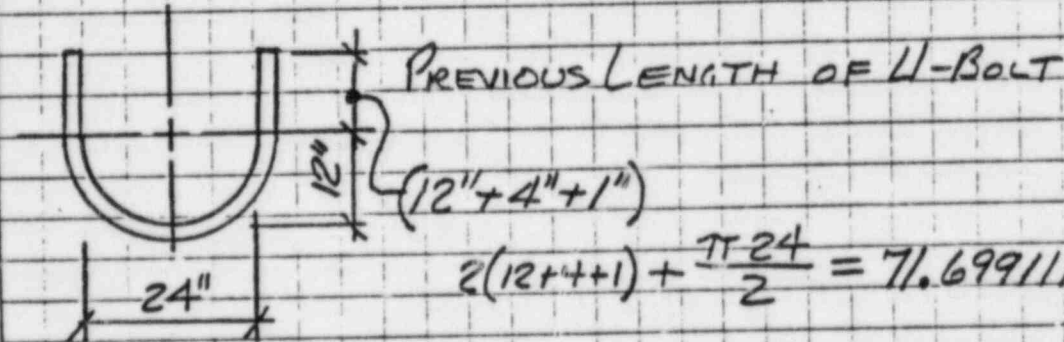 PREVIOUS LENGTH OF U-BOLT
12"
(12"+4"+1")
2(12+4+1) + π24/2 = 71.69911
24"